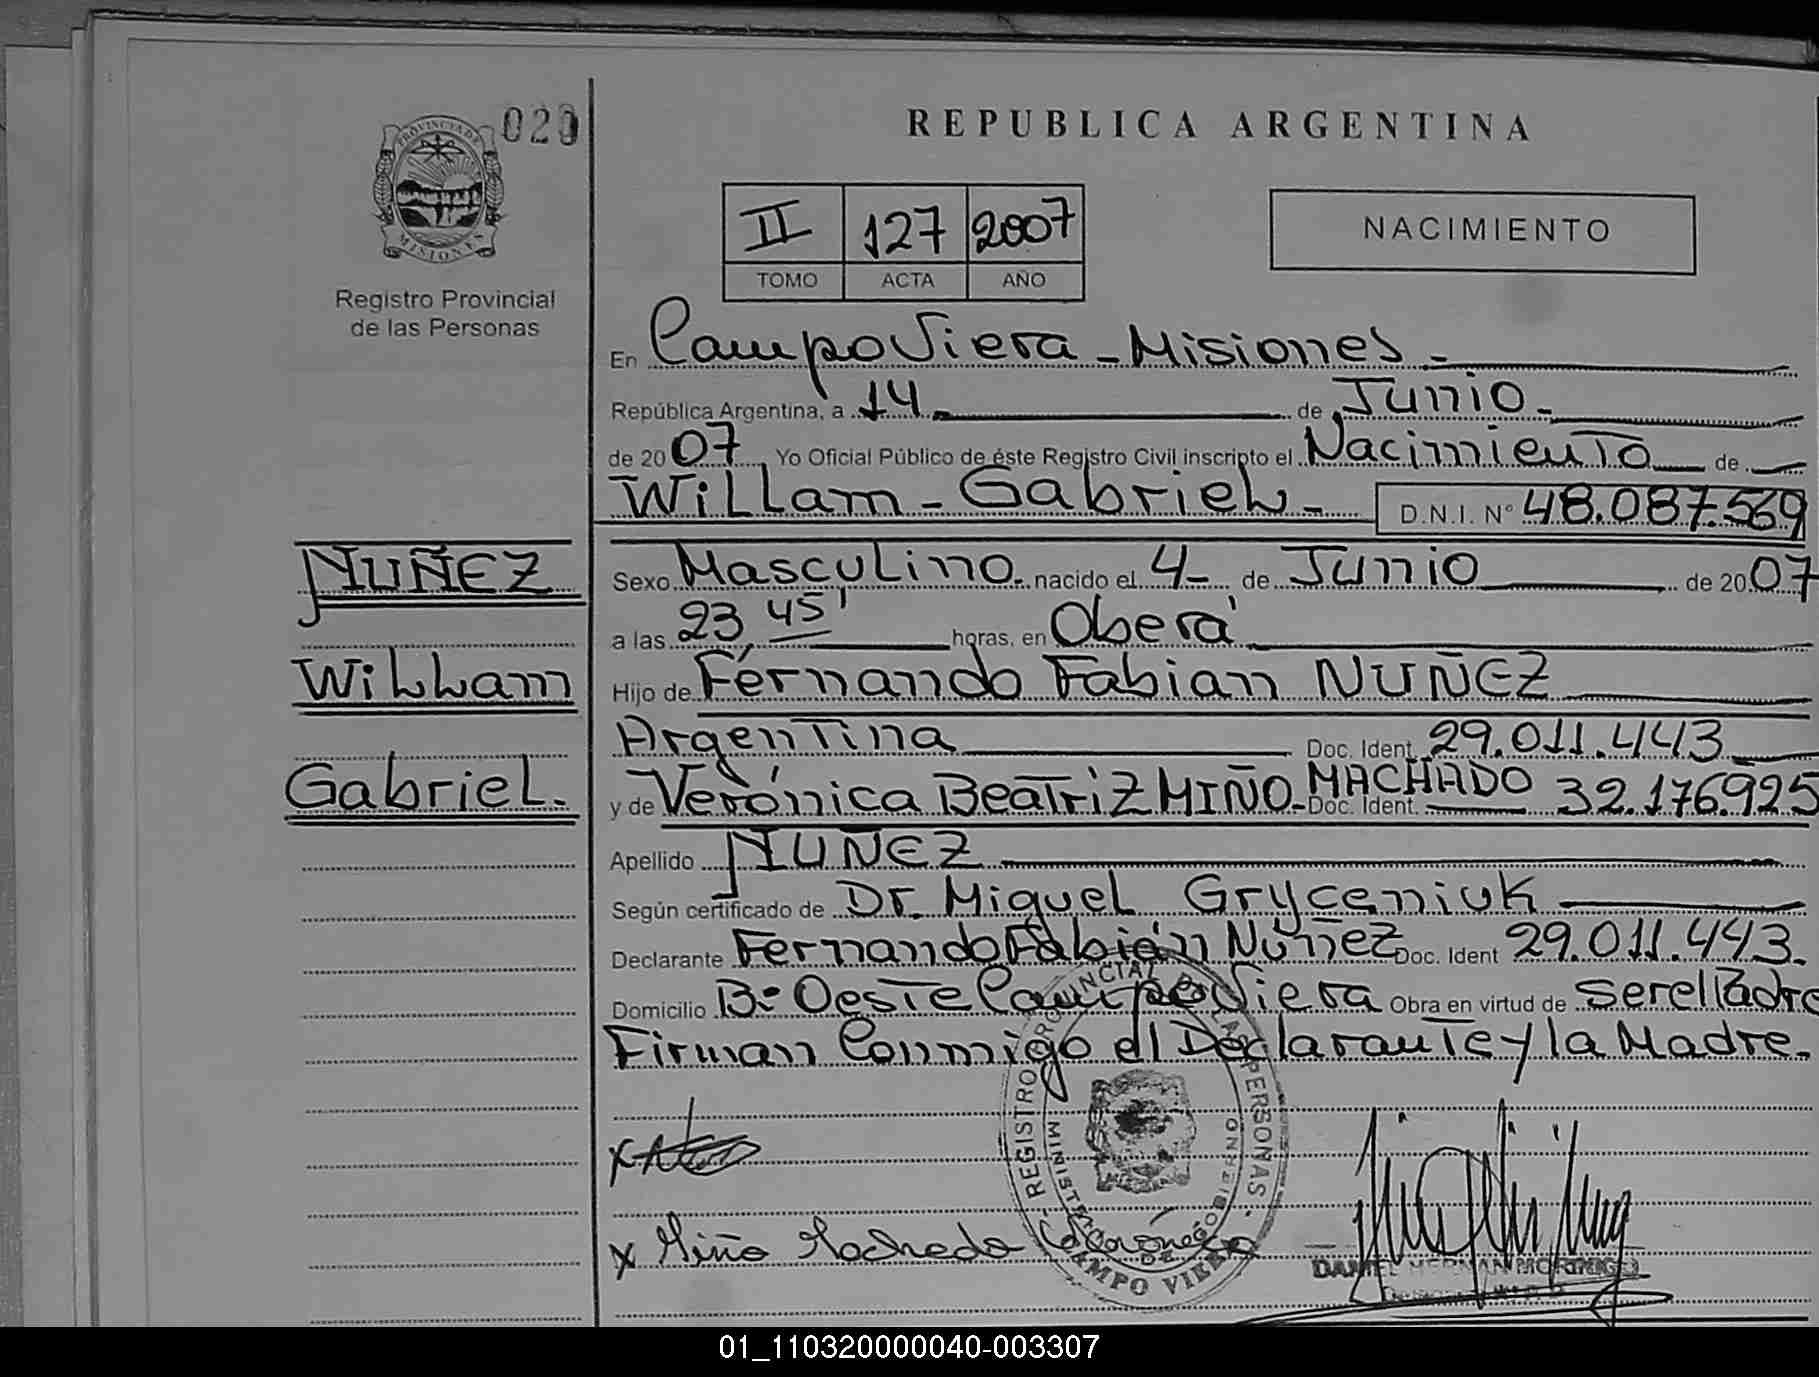 020
PROVINCIA DE
MISIONES
Registro Provincial
de las Personas
NUÑEZ
Willam
Gabriel.
REPUBLICA ARGENTINA
II 127 2007
TOMO ACTA AÑO
NACIMIENTO
En Campo Viera - Misiones -
República Argentina, a 14 - de Junio -
de 2007 Yo Oficial Público de éste Registro Civil inscripto el Nacimiento de
Willam - Gabriel - D.N.I. N° 48.087.569
Sexo Masculino - nacido el 4 - de Junio de 2007
a las 23 45' horas, en Oberá
Hijo de Fernando Fabian NUÑEZ
Argentina Doc. Ident. 29.011.443
y de Verónica Beatriz MIÑO - MACHADO Doc. Ident. 32.176.925
Apellido NUÑEZ
Según certificado de Dr. Miguel Gryceniuk
Declarante Fernando Fabián Núñez Doc. Ident 29.011.443.
Domicilio B° Oeste Campo Viera Obra en virtud de ser el Padre
Firman Conmigo el Declarante y la Madre.
REGISTRO PROVINCIAL DE LAS PERSONAS
CAMPO VIERA
x
x Miño Machado
DANIEL HERNAN
01_110320000040-003307